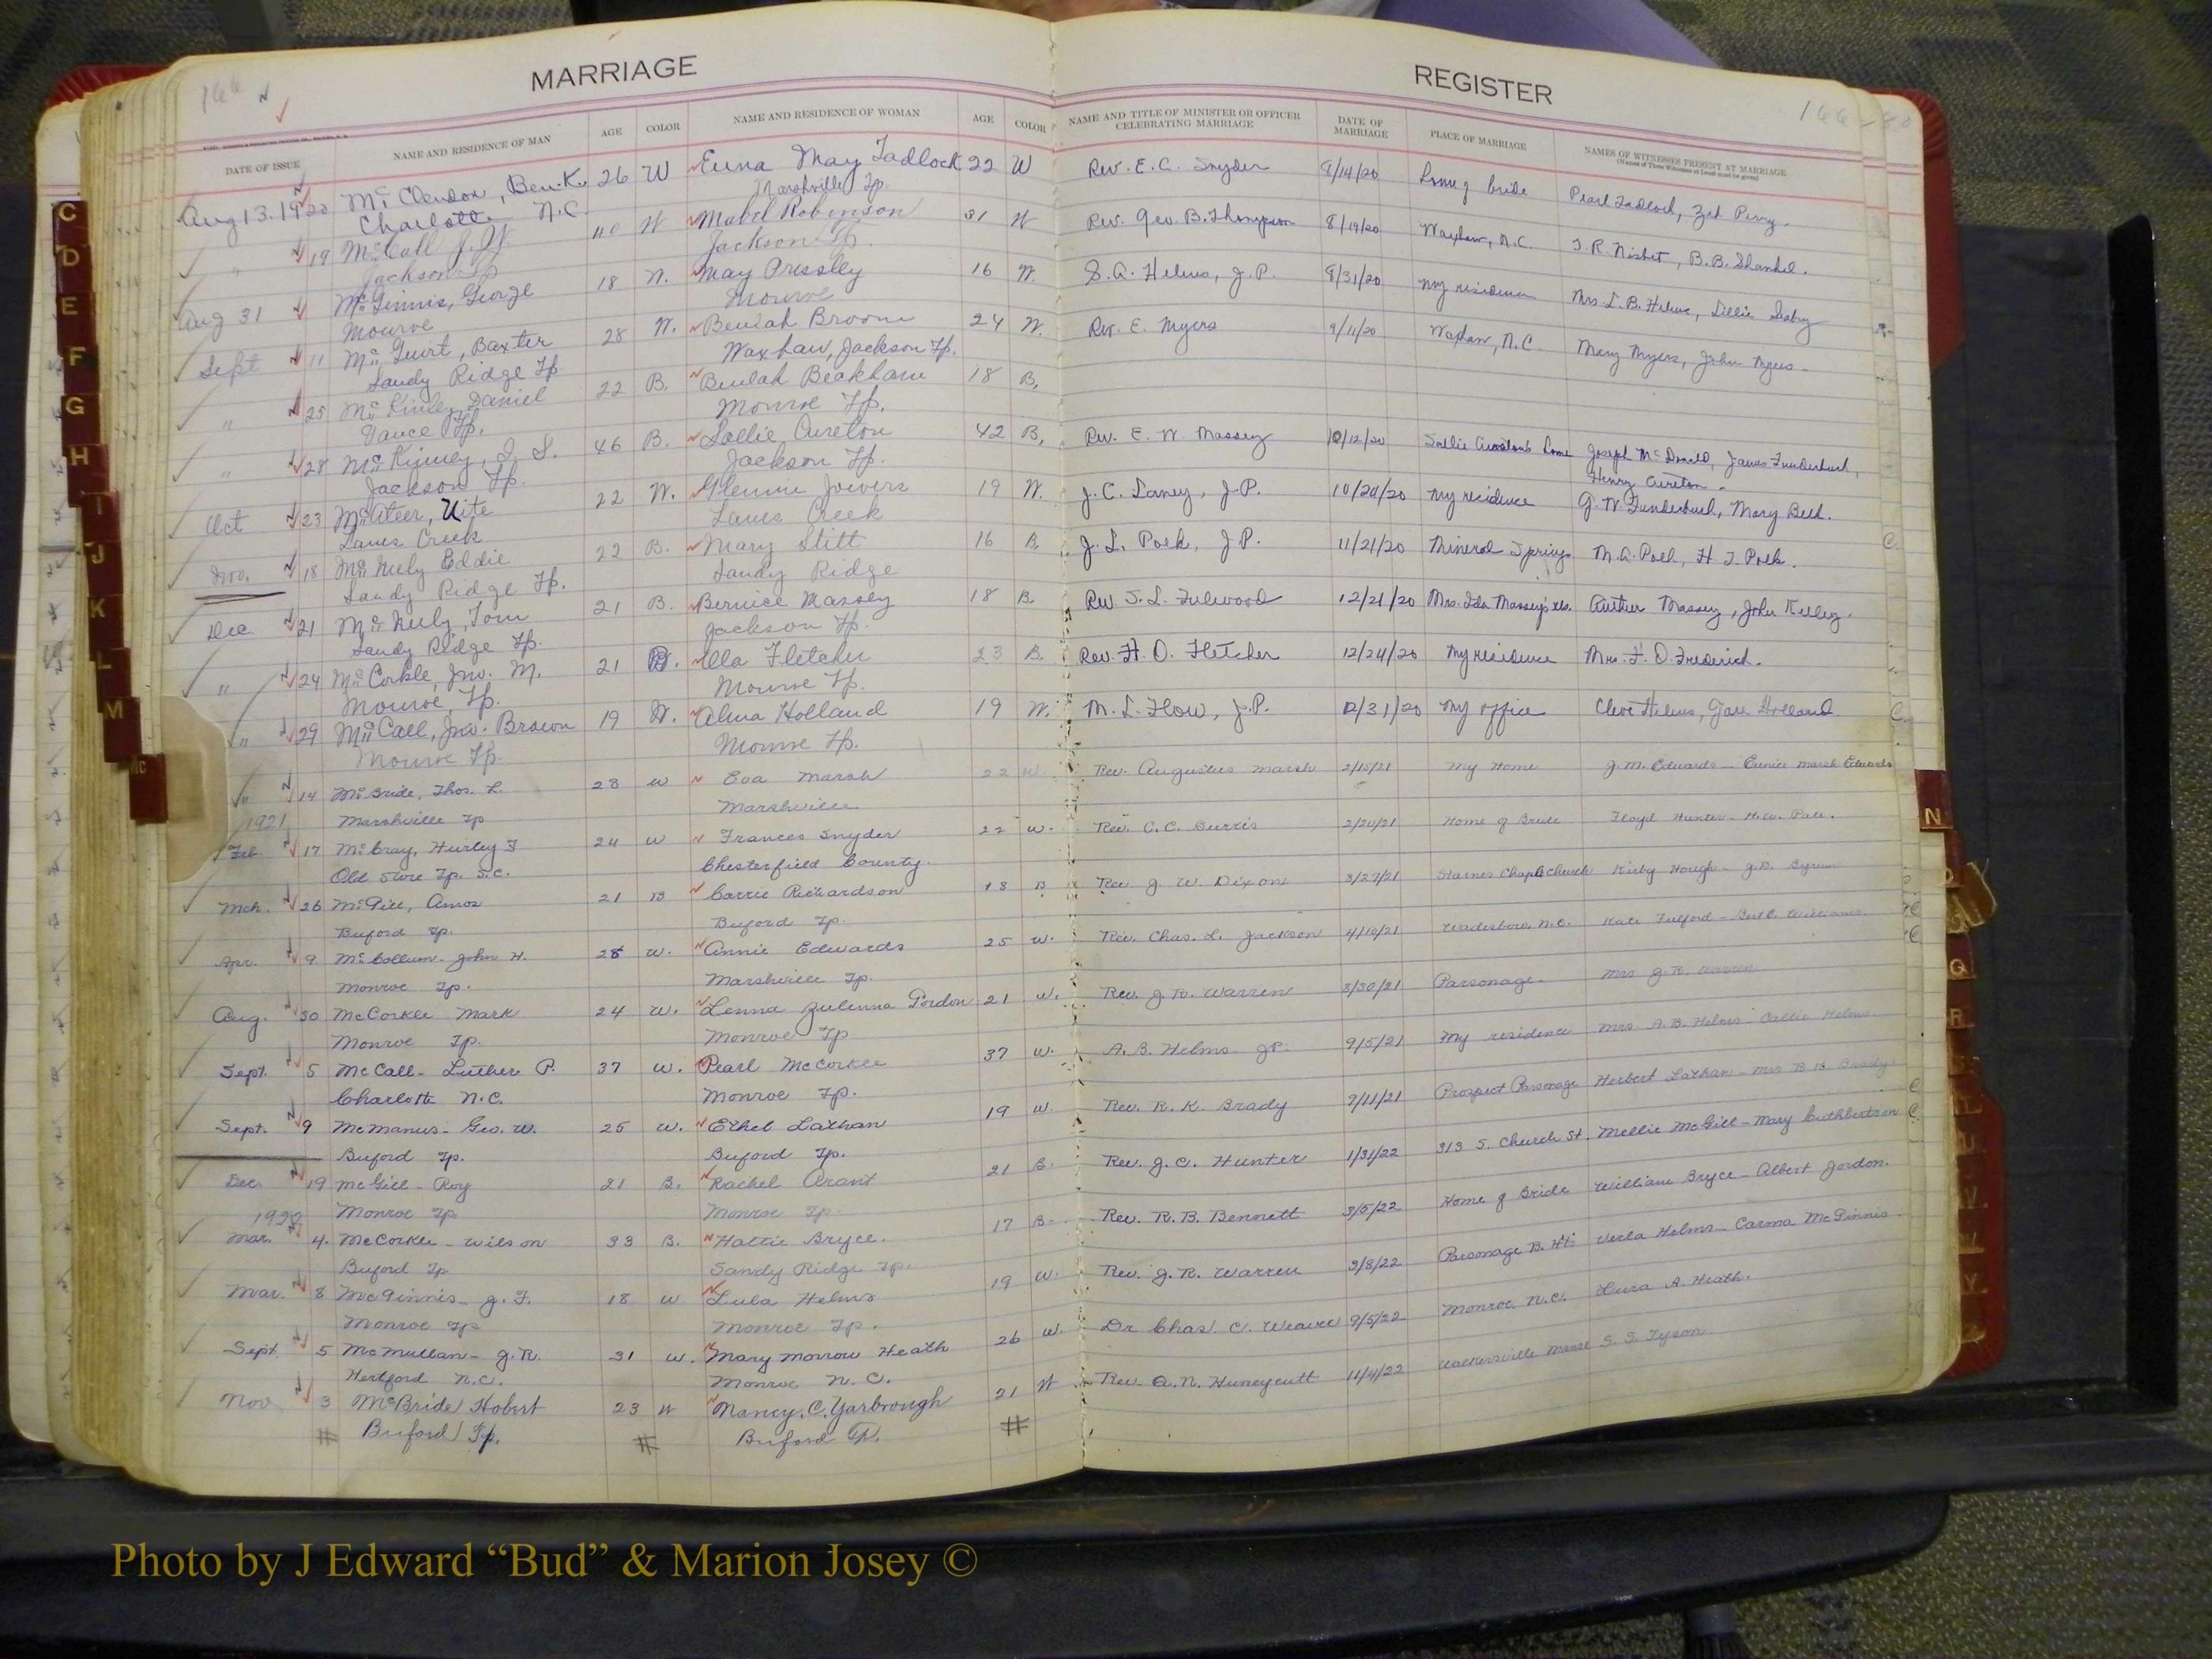 MARRIAGE REGISTER
166 166
DATE OF ISSUE NAME AND RESIDENCE OF MAN AGE COLOR NAME AND RESIDENCE OF WOMAN AGE COLOR NAME AND TITLE OF MINISTER OR OFFICER CELEBRATING MARRIAGE DATE OF MARRIAGE PLACE OF MARRIAGE NAMES OF WITNESSES PRESENT AT MARRIAGE
(Names of Three Witnesses at Least must be given)
Aug 13. 1920 McClendon, Ben. K. 26 W Euna May Tadlock 22 W Rev. E. C. Snyder 8/14/20 home of bride Pearl Tadlock, Perry.
Charlotte N.C. Marshville Tp.
" 19 McCall J. W. 40 W Mabel Robinson 31 W Rev. Geo. B. Thompson 8/19/20 Waxhaw, N.C. T. R. Nisbet, B. B. Shankel.
Jackson Tp Jackson Tp.
Aug 31 McGinnis, George 18 W. May Pressley 16 W. S. A. Helms, J. P. 8/31/20 my residence Mrs. L. B. Helms, Lillie
Monroe Monroe
Sept 11 McGuirt, Baxter 28 W. Beulah Broom 24 W. Rev. E. Myers 9/11/20 Waxhaw, N.C. Mary Myers, John Myers
Sandy Ridge Tp Waxhaw, Jackson Tp.
" 25 McKinley Daniel 22 B. Beulah Beckham 18 B.
Vance Tp. Monroe Tp.
" 28 McKinney, J. S. 46 B. Sallie Cureton 42 B. Rev. E. W. Massey 10/12/20 Sallie Cureton's home Joseph McDonald, James Funderburk,
Jackson Tp. Jackson Tp. Henry Cureton.
Oct 23 McAteer, Uite 22 W. Glennie Jowers 19 W. J. C. Laney, J. P. 10/20/20 my residence G. W. Funderburk, Mary Belk.
Lanes Creek Lanes Creek
Nov. 18 McNuly Eddie 22 B. Mary Stitt 16 B. J. L. Polk, J. P. 11/21/20 Mineral Springs M. A. Polk, H. J. Polk.
Sandy Ridge Tp. Sandy Ridge
Dec 21 McNuly, Tom 21 B. Bernice Massey 18 B. Rev. S. L. Fulwood 12/21/20 Mrs. Ida Massey's res. Arther Massey, John Kelley.
Sandy Ridge Tp. Jackson Tp.
" 24 McCorkle, Jno. M. 21 B. Ella Fletcher 23 B. Rev. H. O. Fletcher 12/24/20 my residence Mrs. F. O. Frederick.
Monroe, Tp. Monroe Tp.
" 29 McCall, Jno. Brown 19 W. Alma Holland 19 W. M. L. Flow, J. P. 12/31/20 my office Cleve Helms, Holland
Monroe Tp. Monroe Tp.
" 14 McBride, Thos. L. 28 W Eva Marsh 22 W. Rev. Augustus Marsh 2/15/21 my Home J. M. Edwards - Eunice Marsh Edwards
1921 Marshville Tp Marshville
Feb. 17 McCray, Hurley F 24 W Frances Snyder 22 W. Rev. C. C. Burris 2/20/21 Home of Bride Floyd Hunter - H. W. Pace.
Old Store Tp. S.C. Chesterfield County.
Mch. 26 McGill, Amos 21 B Carrie Richardson 18 B Rev J. W. Dixon 3/27/21 Starnes Chapel church Kirby Hough - J. D. Byrum
Buford Tp. Buford Tp.
Apr. 9 McCollum - John H. 28 W. Annie Edwards 25 W. Rev. Chas. L. Jackson 4/10/21 Wadesboro, N.C. Kate Fulford - Williams
Monroe Tp. Marshville Tp.
Aug. 30 McCorkle Mark 24 W. Lenna Zulenna Gordon 21 W. Rev. J. R. Warren 8/30/21 Parsonage. Mrs J. R. Warren
Monroe Tp. Monroe Tp
Sept. 5 McCall - Luther P. 37 W. Pearl McCorkle 37 W. A. B. Helms J.P. 9/5/21 My residence Mrs. A. B. Helms - Callie Helms
Charlotte N.C. Monroe Tp.
Sept. 9 McManus - Geo. W. 25 W. Ethel Lathan 19 W. Rev. R. K. Brady 9/11/21 Prospect Parsonage Herbert Lathan - Mrs R K Brady
Buford Tp. Buford Tp.
Dec. 19 McGill - Roy 21 B. Rachel Grant 21 B. Rev. J. C. Hunter 1/31/22 313 S. Church St. Mellie McGill - Mary Cuthbertson
1922 Monroe Tp Monroe Tp.
Mar. 4. McCorkle - Wilson 33 B. Hattie Bryce. 17 B. Rev. R. B. Bennett 3/5/22 Home of Bride William Bryce - Albert Gordon.
Buford Tp Sandy Ridge Tp.
Mar. 8 McGinnis - J. F. 18 W Lula Helms 19 W. Rev. J. R. Warren 3/8/22 Parsonage B. Hts Verla Helms - Carma McGinnis
Monroe Tp Monroe Tp.
Sept. 5 McMullan - J. R. 31 W. Mary Morrow Heath 26 W. Dr Chas. C. Weaver 9/5/22 Monroe N.C. Lura A. Heath.
Hertford N.C. Monroe N. C.
Nov. 3 McBride Hobert 23 W Nancy. C. Yarbrough 21 W Rev. A. N. Huneycutt 11/4/22 Walkersville Manse S. S. Tyson
# Buford Tp. # Buford Tp. #
C
D
E
F
G
H
I
J
K
L
M
Mc
N
Q
R
Photo by J Edward “Bud” & Marion Josey ©